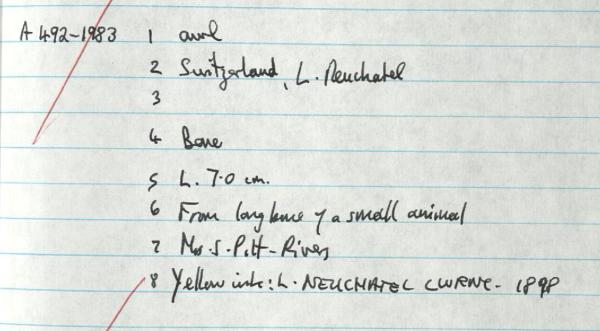 A 492-1983 1 awl
2 Switzerland, L. Neuchatel
3
4 Bone
5 L. 7.0 cm.
6 From long bone of a small animal
7 Mrs. S. Pitt-Rivers
8 Yellow ink: L. NEUCHATEL - 1898